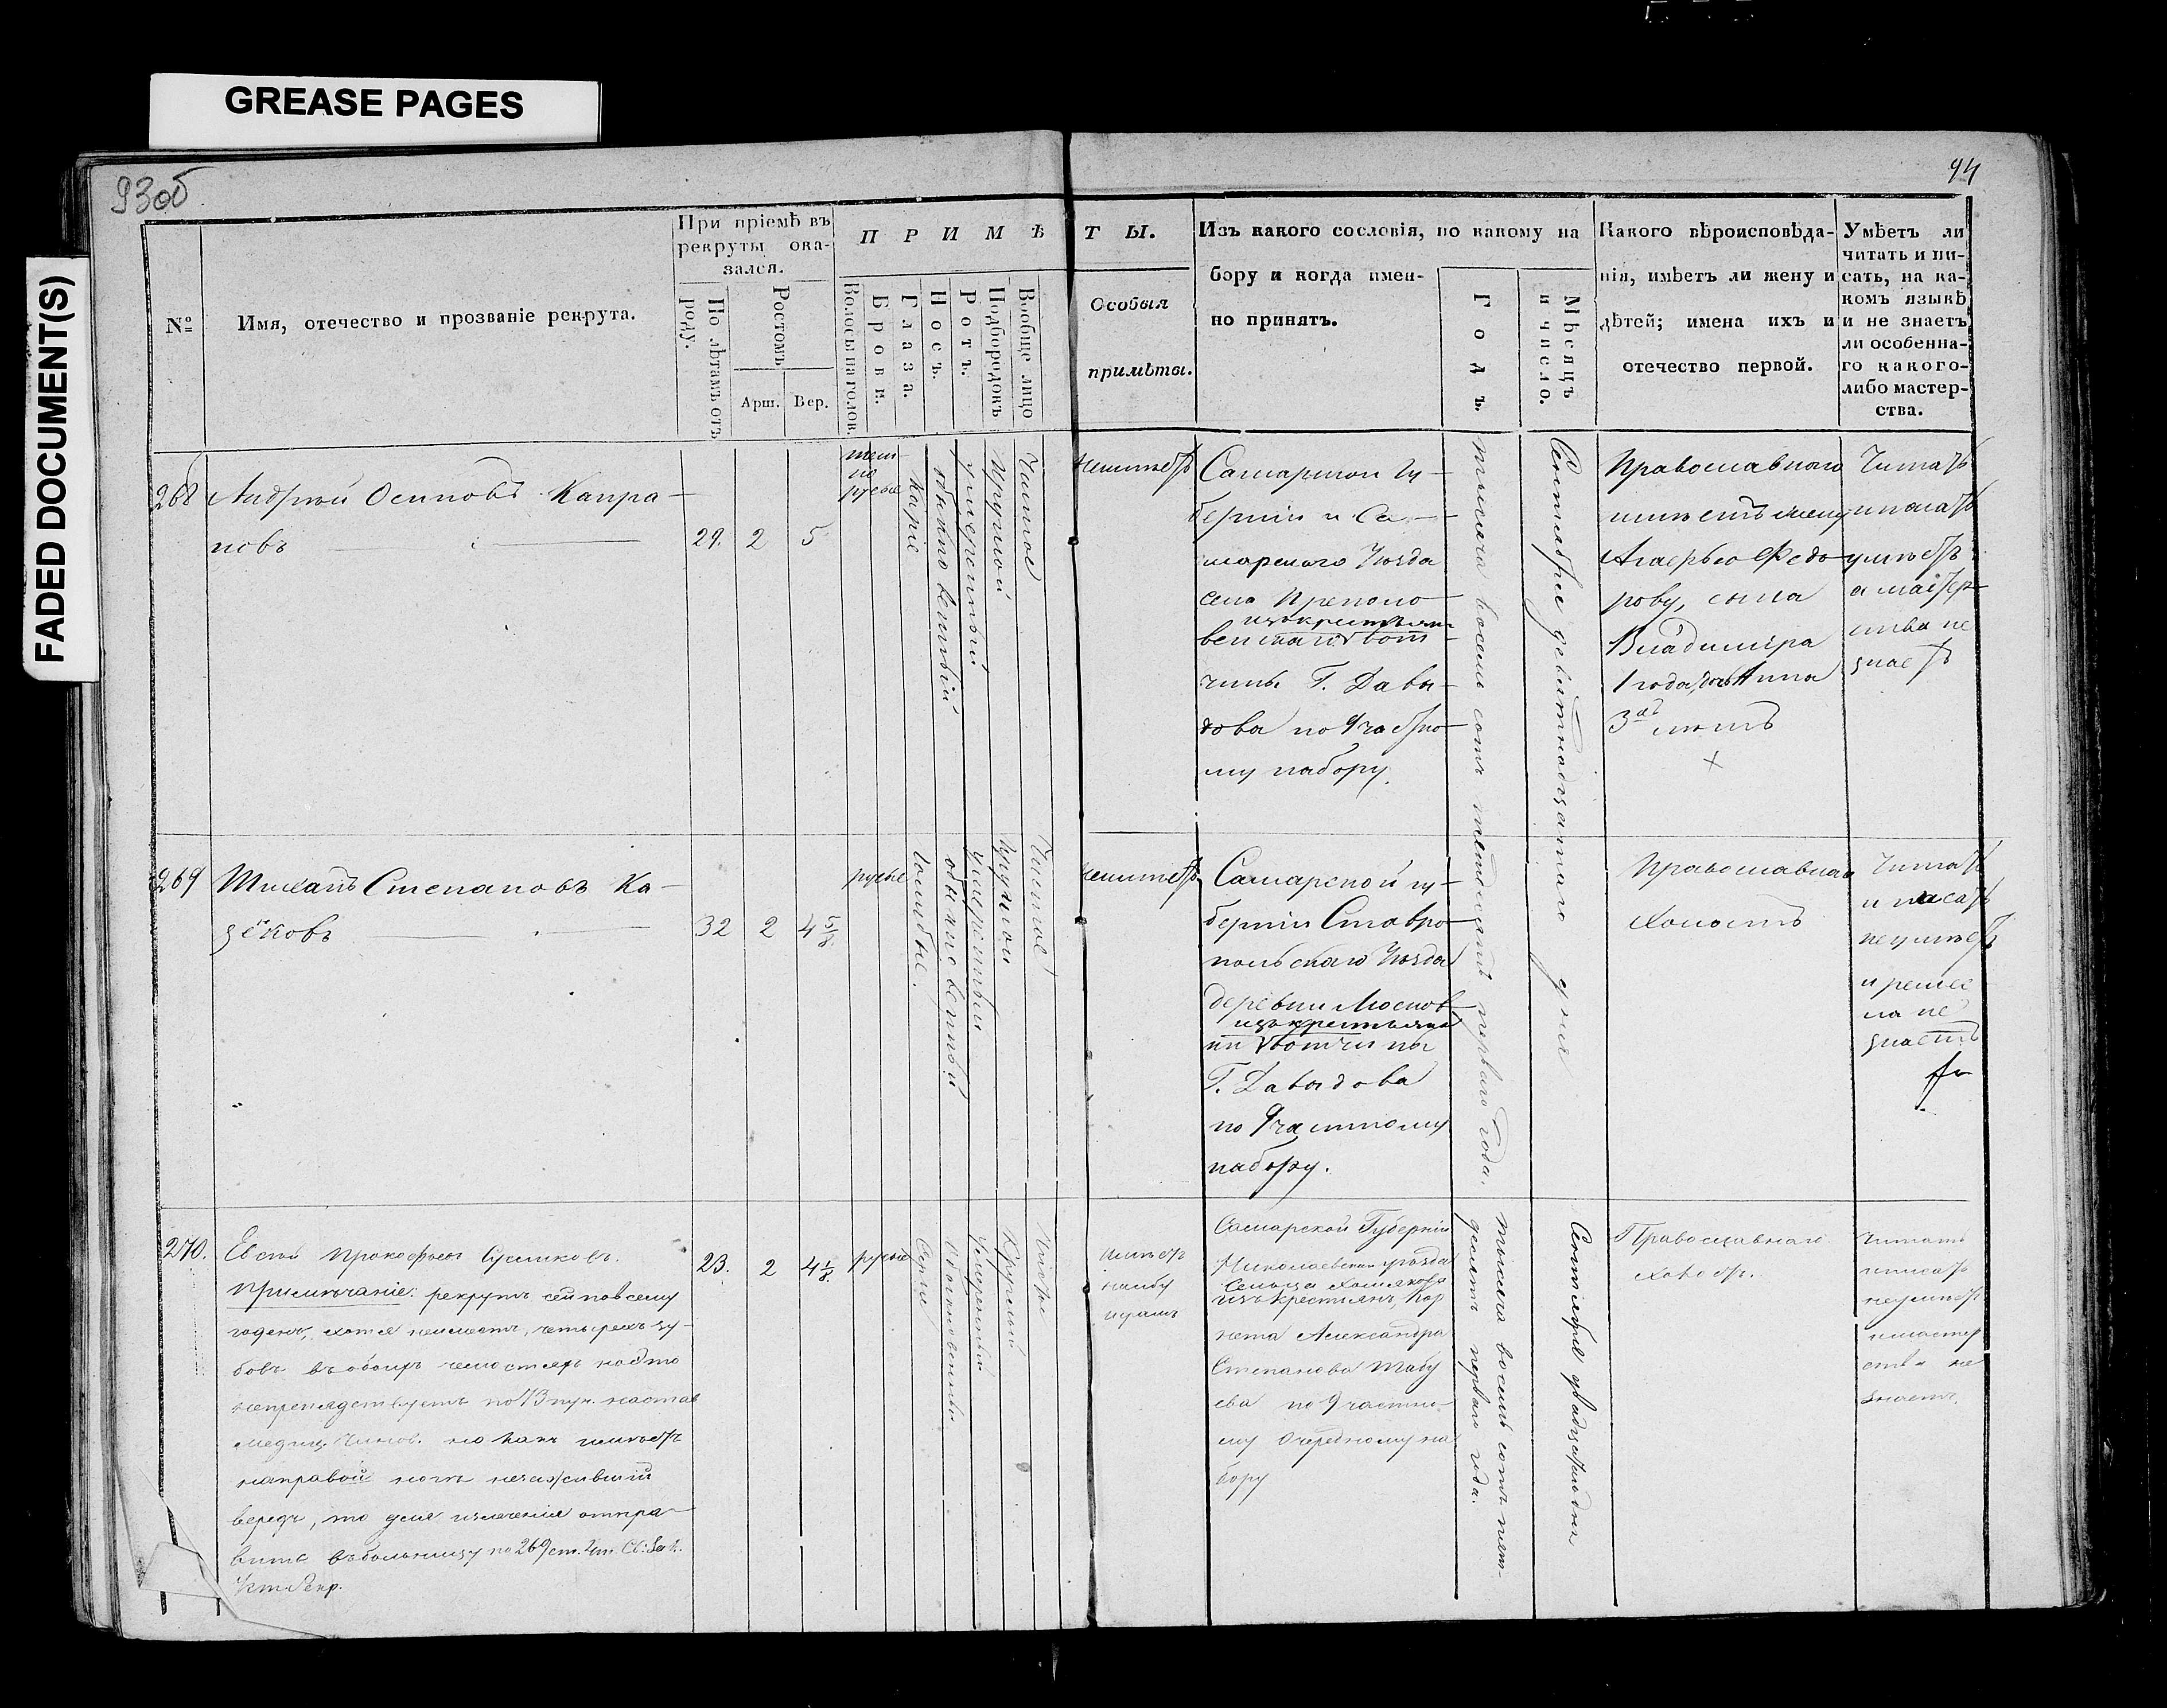 GREASE PAGES
FADED DOCUMENT(S)
93об
94
№
Имя, отечество и прозваніе рекрута.
При пріемѣ въ
рекруты ока-
зался.
По лѣтамъ отъ
роду.
Ростомъ
Арш.
Вер.
ПРИМѢТЫ.
Волосы на головѣ
Брови.
Глаза.
Носъ.
Ротъ.
Подбородокъ
Вообще лицо
Особыя
примѣты.
Изъ какого сословія, по какому на
бору и когда имен-
но принятъ.
Годъ.
Мѣсяцъ
и число.
Какого вѣроисповѣда-
нія, имѣетъ ли жену и
дѣтей; имена ихъ и
отечество первой.
Умѣетъ ли
читать и пи-
сать, на ка-
комъ языкѣ
и не знаетъ
ли особенна-
го какого-
либо мастер-
ства.
268
Андрей Осиповъ Капра-
новъ
29.
2
5
темно
русые
Каріе
обыкновенный
умеренный
Круглой
Чистое
неимѣетъ
Самарской Гу-
берніи и Са-
марскаго Уѣзда
села Преполо-
изъ крестьянъ
венскаго вот-
чины Г. Давы-
дова по 9 частно-
му набору.
тысяча восемь сотъ пятьдесятъ перваго года.
Сентября девятнадцатаго дня
Православнаго
имѣетъ жену
Федо-
рову, сына
Владиміра
1 года, дочь Анна
3 лѣтъ
Читать
и писать
умѣетъ
а мастер-
ства не
знаетъ
269
Степановъ Ка-
зёковъ
32
2
4 5/8
русые
Голубые.
обыкновенный
умеренный
Круглой
Чистое
неимѣетъ
Самарской гу-
берніи Ставро-
польскаго Уѣзда
деревни Московк-
изъ крестьянъ
ни вотчины
Г. Давыдова
по 9 частному
набору.
Православная
Холостъ
Читать
и писать
неумѣетъ
и ремес
ла не
знаетъ
270.
Евсей Прокофьевъ Сусликовъ.
Примѣчаніе: рекрутъ сей по всему
годенъ, хотя неимеетъ, четырехъ зу-
бовъ въ обоихъ челюстяхъ но это
непрепядствуетъ по 13 пун. настав
медиц. Чинов. но какъ имѣетъ
направой ноге незаживший
вередъ, то для излеченія отпра-
вить въ больницу по 269 ст. 4 т. Св: Зак.
Уст. Рекр.
23.
2
4 1/8.
русые
Серые
Обыкновенный
Умеренный
Круглый
имѣетъ
Самарской Губерніи
Николаевскаго уѣзда
Сельца Хомяково
изъ крестьянъ, Кор
нета Александра
Степанова Шабу
ева по 9 частно-
му Очередному на
бору
тысяча восемь сотъ пять-
десятъ перваго года.
Сентября двадцат
Православная
холостъ.
Читать
и писать
неумѣетъ
и мастер
ства не
знаетъ.